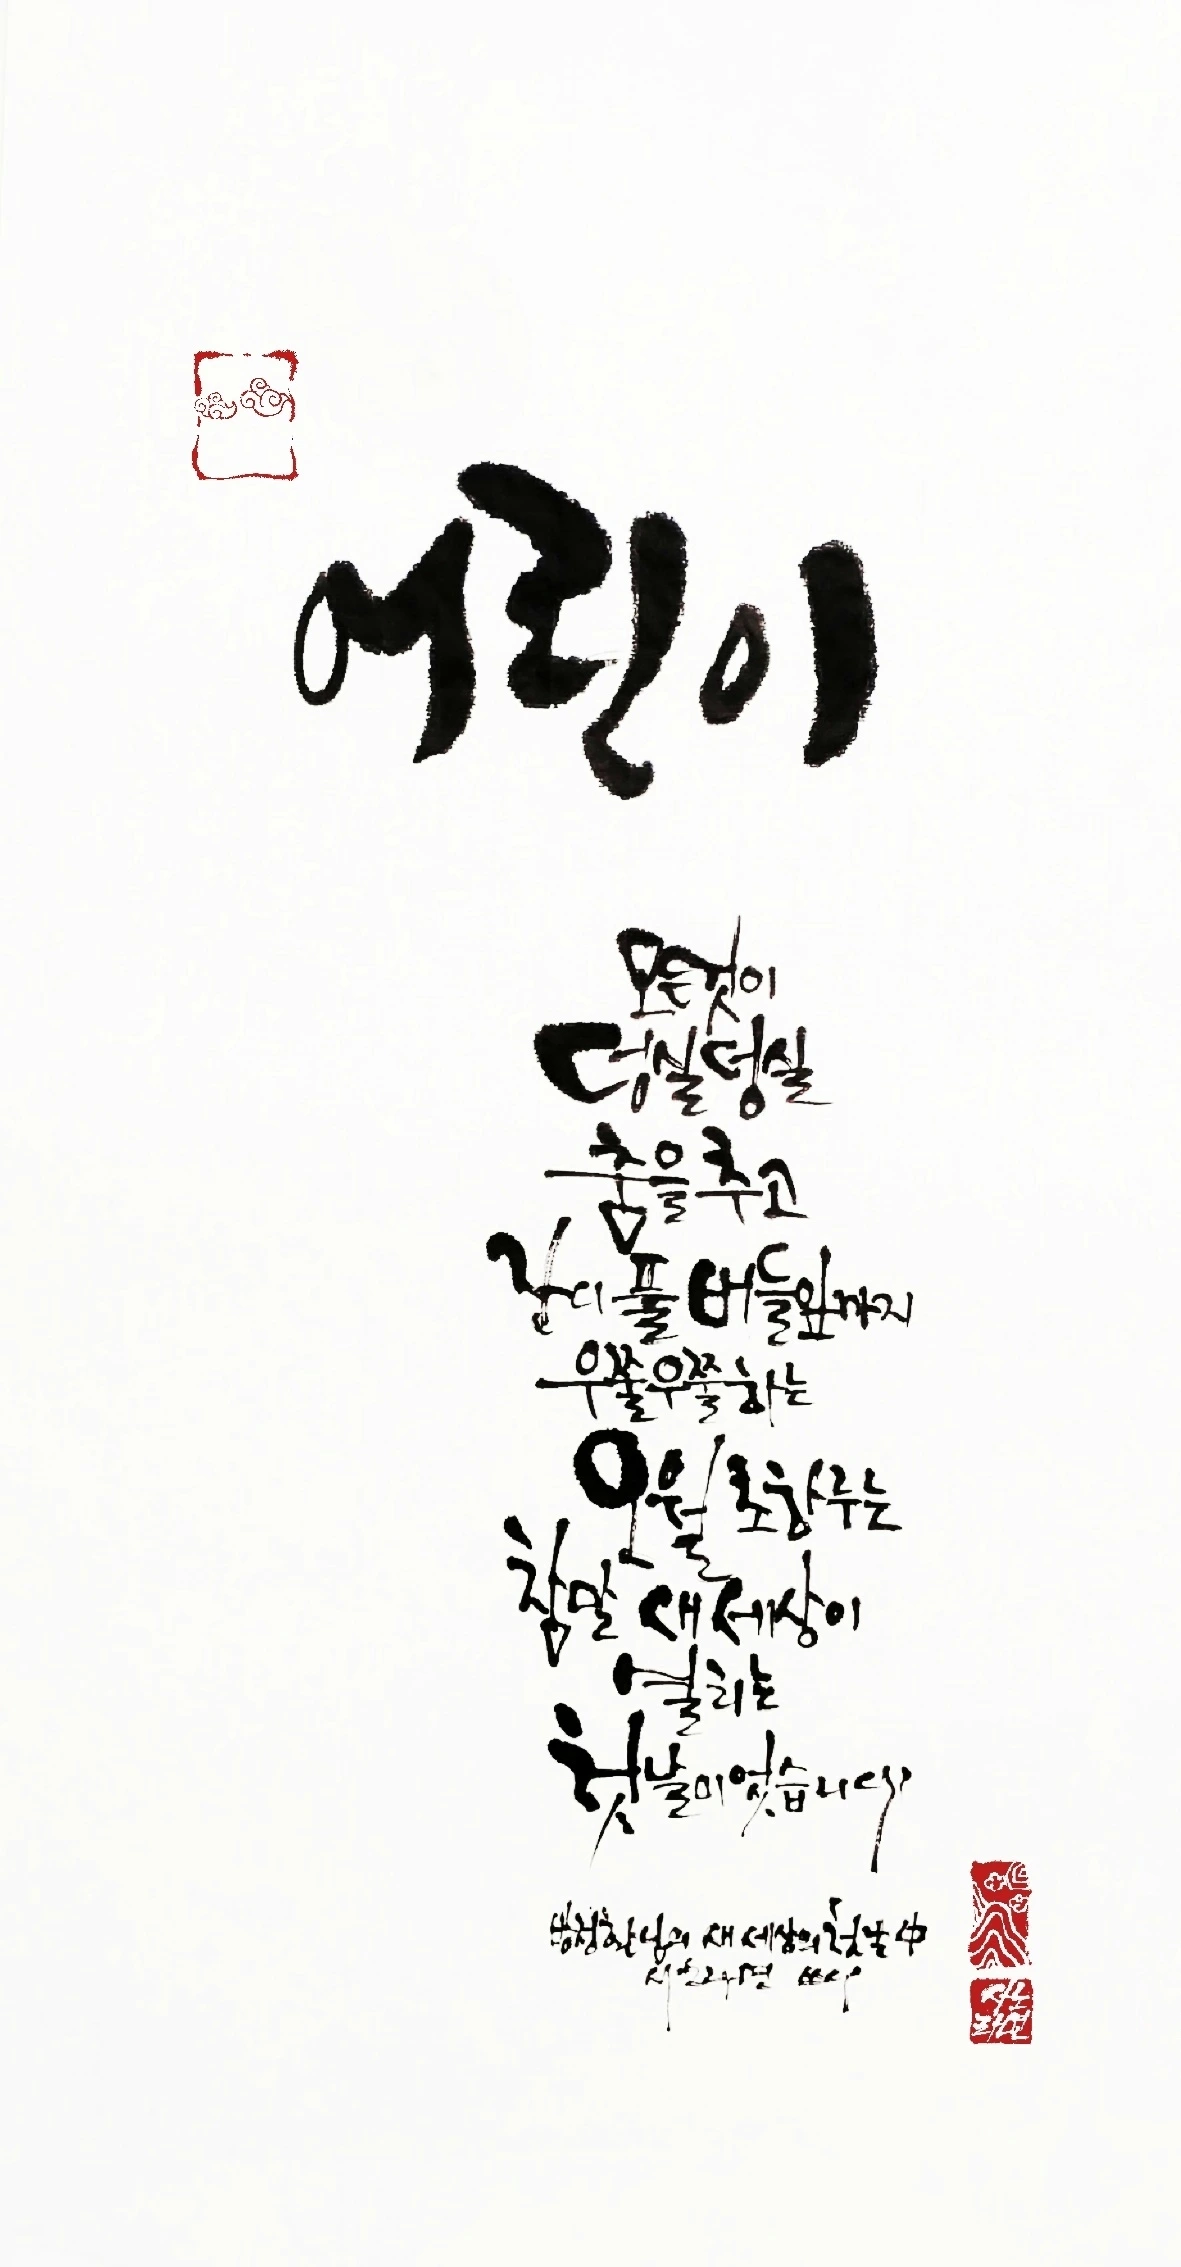 어린이
모든것이
덩실덩실
춤을 추고
잔디 풀 버들잎까지
우쭐우쭐하는
오월 초하루는
참말 새세상이
열리는
첫날이었습니다
방정환님의 새 세상의 첫날 中